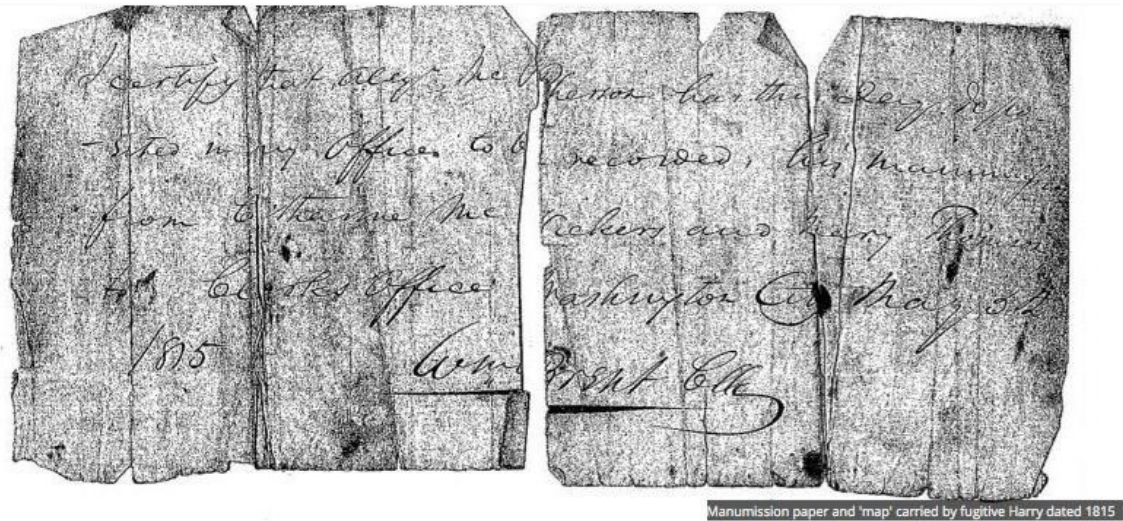 I certify that Alexr. Mc Pherson has this day depo
-sited in my Office to be recorded, his manumis
from Catharine Mc Vickers and Mary
Clerks Office Washington City May
1815
Wm Brent Clk
Manumission paper and 'map' carried by fugitive Harry dated 1815